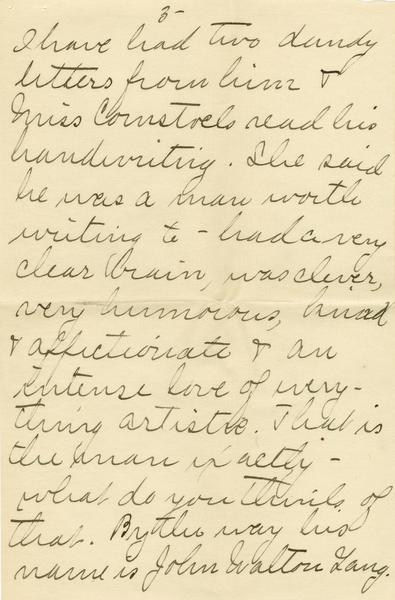 3-
I have had two dandy
letters from him &
Miss Comstock read his
handwriting. She said
he was a man worth
writing to - had a very
clear brain, was clever,
very humorous, kind
& affectionate & an
intense love of every-
thing artistic. That is
the man exactly -
what do you think of
that. By the way his
name is John Walton Lang.